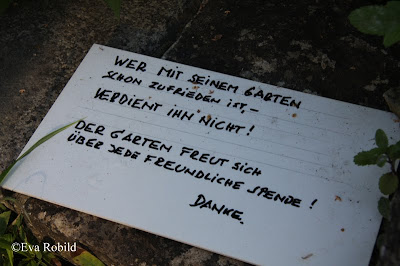 WER MIT SEINEM GARTEN
SCHON ZUFRIEDEN IST,–
VERDIENT IHN NICHT!
DER GARTEN FREUT SICH
ÜBER JEDE FREUNDLICHE SPENDE!
DANKE.
©Eva Robild